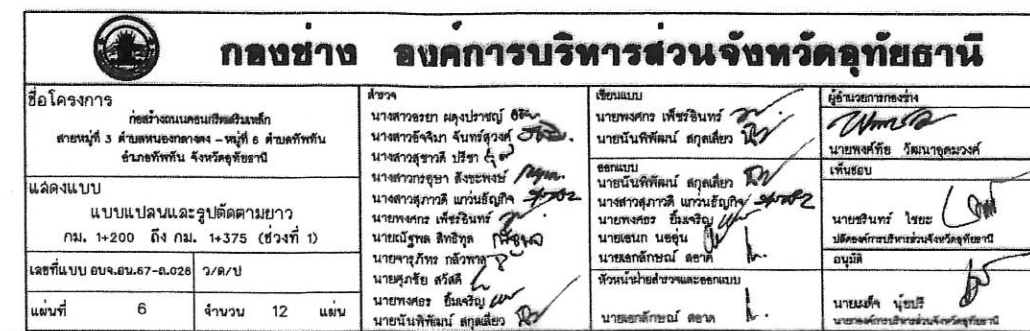 กองช่าง องค์การบริหารส่วนจังหวัดอุทัยธานี
ชื่อโครงการ
ก่อสร้างถนนคอนกรีตเสริมเหล็ก
สายหมู่ที่ 3 ตำบลหนองกลางดง - หมู่ที่ 6 ตำบลทัพทัน
อำเภอทัพทัน จังหวัดอุทัยธานี
แสดงแบบ
แบบแปลนและรูปตัดตามยาว
กม. 1+200 ถึง กม. 1+375 (ช่วงที่ 1)
เลขที่แบบ อบจ.อน.67-ถ.028 ว/ด/ป
แผ่นที่ 6 จำนวน 12 แผ่น
สำรวจ
นางสาวอรยา ผดุงปราชญ์
นางสาวอัจจิมา จันทร์สุวงศ์
นางสาวสุชาวดี ปรีชา
นางสาวกรอุษา สังขะพงษ์
นางสาวสุภาวดี แก่นธัญกิจ
นายพงศกร เพ็ชร์อินทร์
นายณัฐพล สิทธิกุล
นายจารุภัทร กลัวพาล
นายศุภชัย สวัสดี
นายพงศธร ยิ้มเจริญ
นายนันพิพัฒน์ สกุลเสี่ยว
เขียนแบบ
นายพงศกร เพ็ชร์อินทร์
นายนันพิพัฒน์ สกุลเสี่ยว
ออกแบบ
นายนันพิพัฒน์ สกุลเสี่ยว
นางสาวสุภาวดี แก่นธัญกิจ
นายพงศธร ยิ้มเจริญ
นายเอนก นออุ่น
นายเอกลักษณ์ สอาด
หัวหน้าฝ่ายสำรวจและออกแบบ
นายเอกลักษณ์ สอาด
ผู้อำนวยการกองช่าง
นายพงศ์ทัย วัฒนาอุดมวงศ์
เห็นชอบ
นายชรินทร์ ไชยะ
ปลัดองค์การบริหารส่วนจังหวัดอุทัยธานี
อนุมัติ
นายเผด็จ นุ้ยปรี
นายกองค์การบริหารส่วนจังหวัดอุทัยธานี